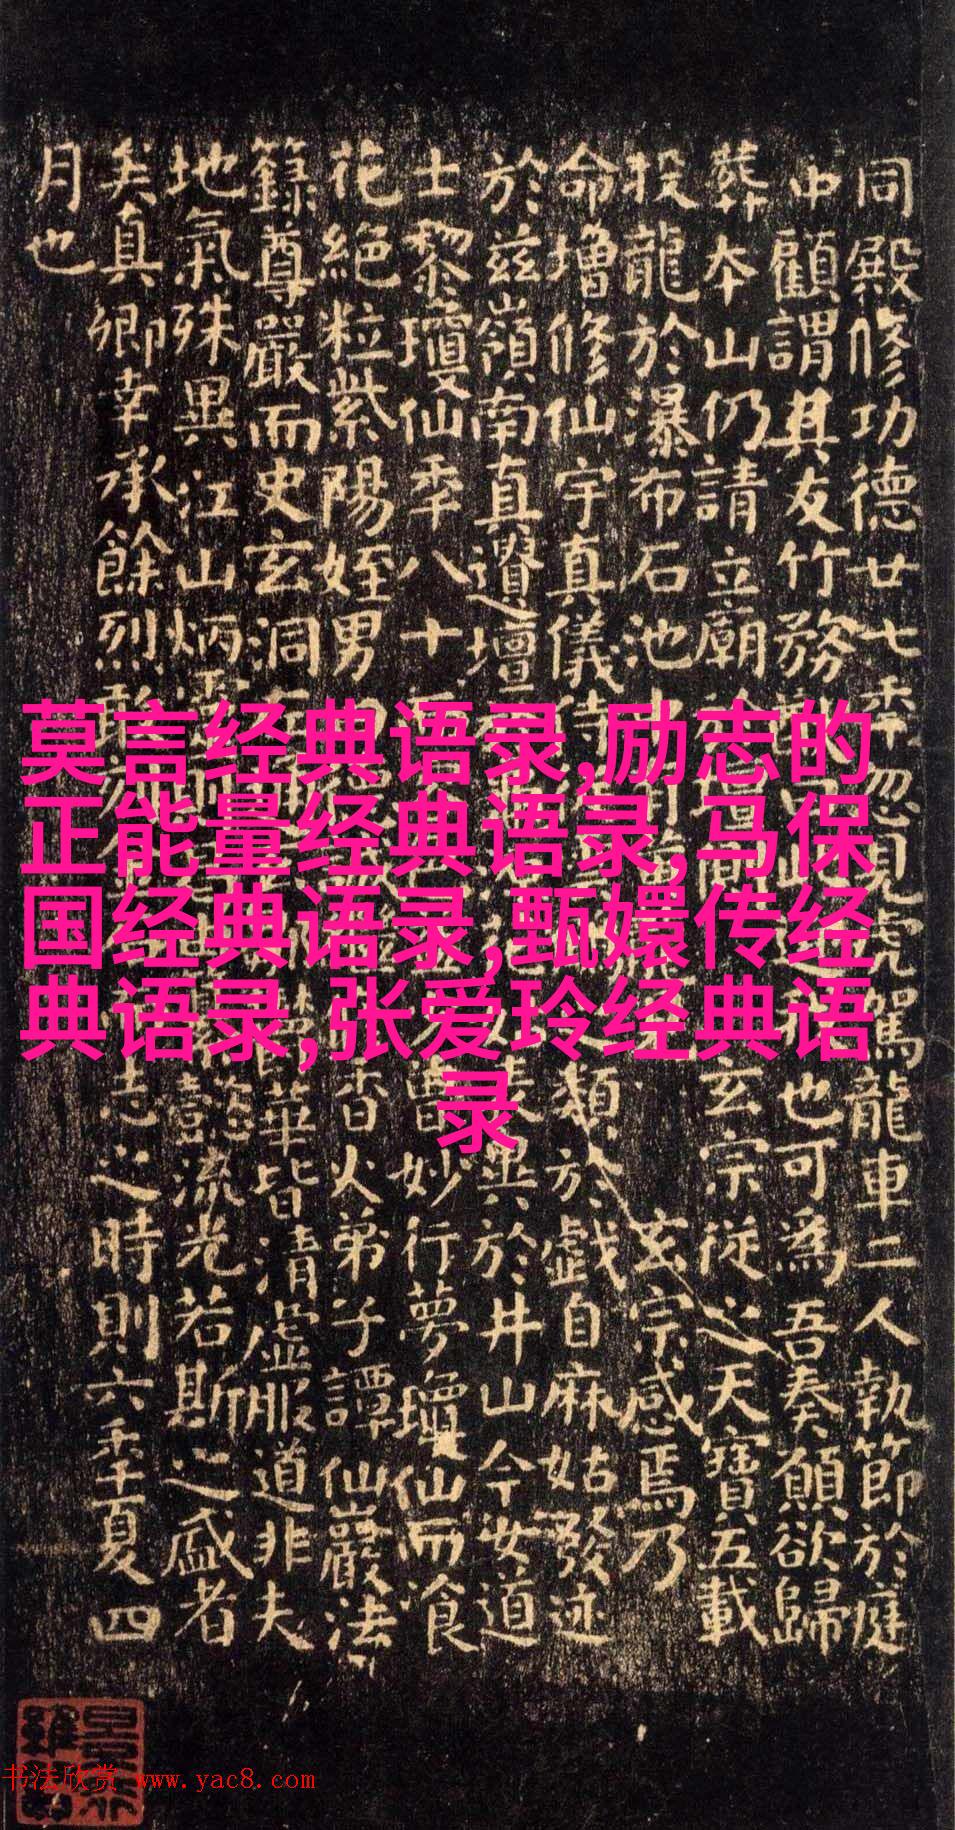 莫言经典语录,励志的
正能量经典语录,马保
国经典语录,甄嬛传经
典语录,张爱玲经典语
录
同殿修功德廿七年忽見虎駕龍車二人執節於庭
中顧謂其友竹務曰此迎也可為吾奏願欲歸
葬本山仍請立廟玄宗從之天寶五載
投龍於瀑布石池中玄宗感焉乃
命增修仙宇真儀侍之類於戲自麻姑發迹
於茲嶺南真遺壇表異於井山今女道
士黎瓊仙年八十曾妙行夢瓊仙而飡
花絕粒紫陽姪男曰香火弟子譚仙巖法
籙尊嚴而史玄洞左鬱華皆清虛服道非夫
地氣殊異江山炳靈懿流光若斯之盛者
矣真卿幸承餘烈敢刊志之時則六年夏四
月也
书法欣赏 www.yac8.com